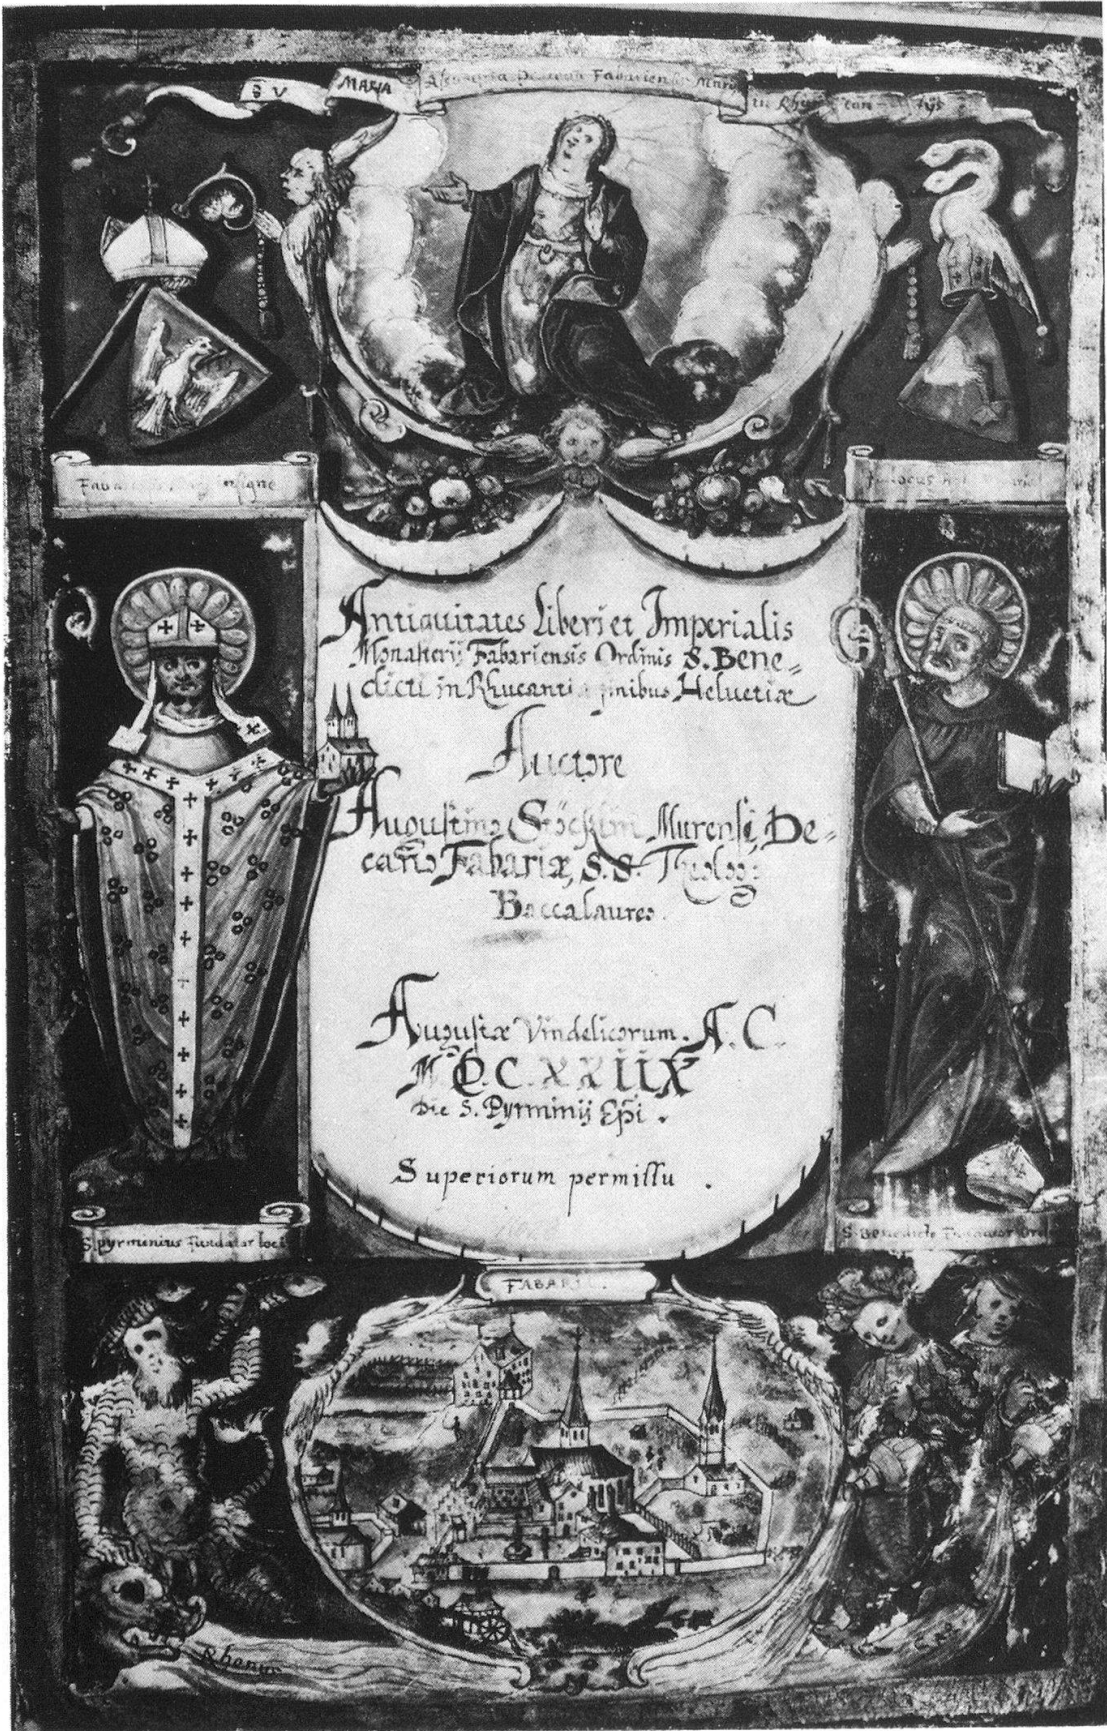 S V MARIA
Favariensis insigne
Antiquitates Liberi et Imperialis
Monasterij Fabariensis Ordinis S. Bene-
dicti in Rhucantia finibus Helvetiæ
Auctore
Augustino Stöcklin Murensi, De-
cano Fabariæ, S. S. Theolog:
Baccalaureo.
Augustæ Vindelicorum. A. C.
M.D.C.XXIIX
Die S. Pyrminij Epi.
Superiorum permissu.
S. pyrmenius Fundator loci
S. Benedicto
FABARI
Rhenus